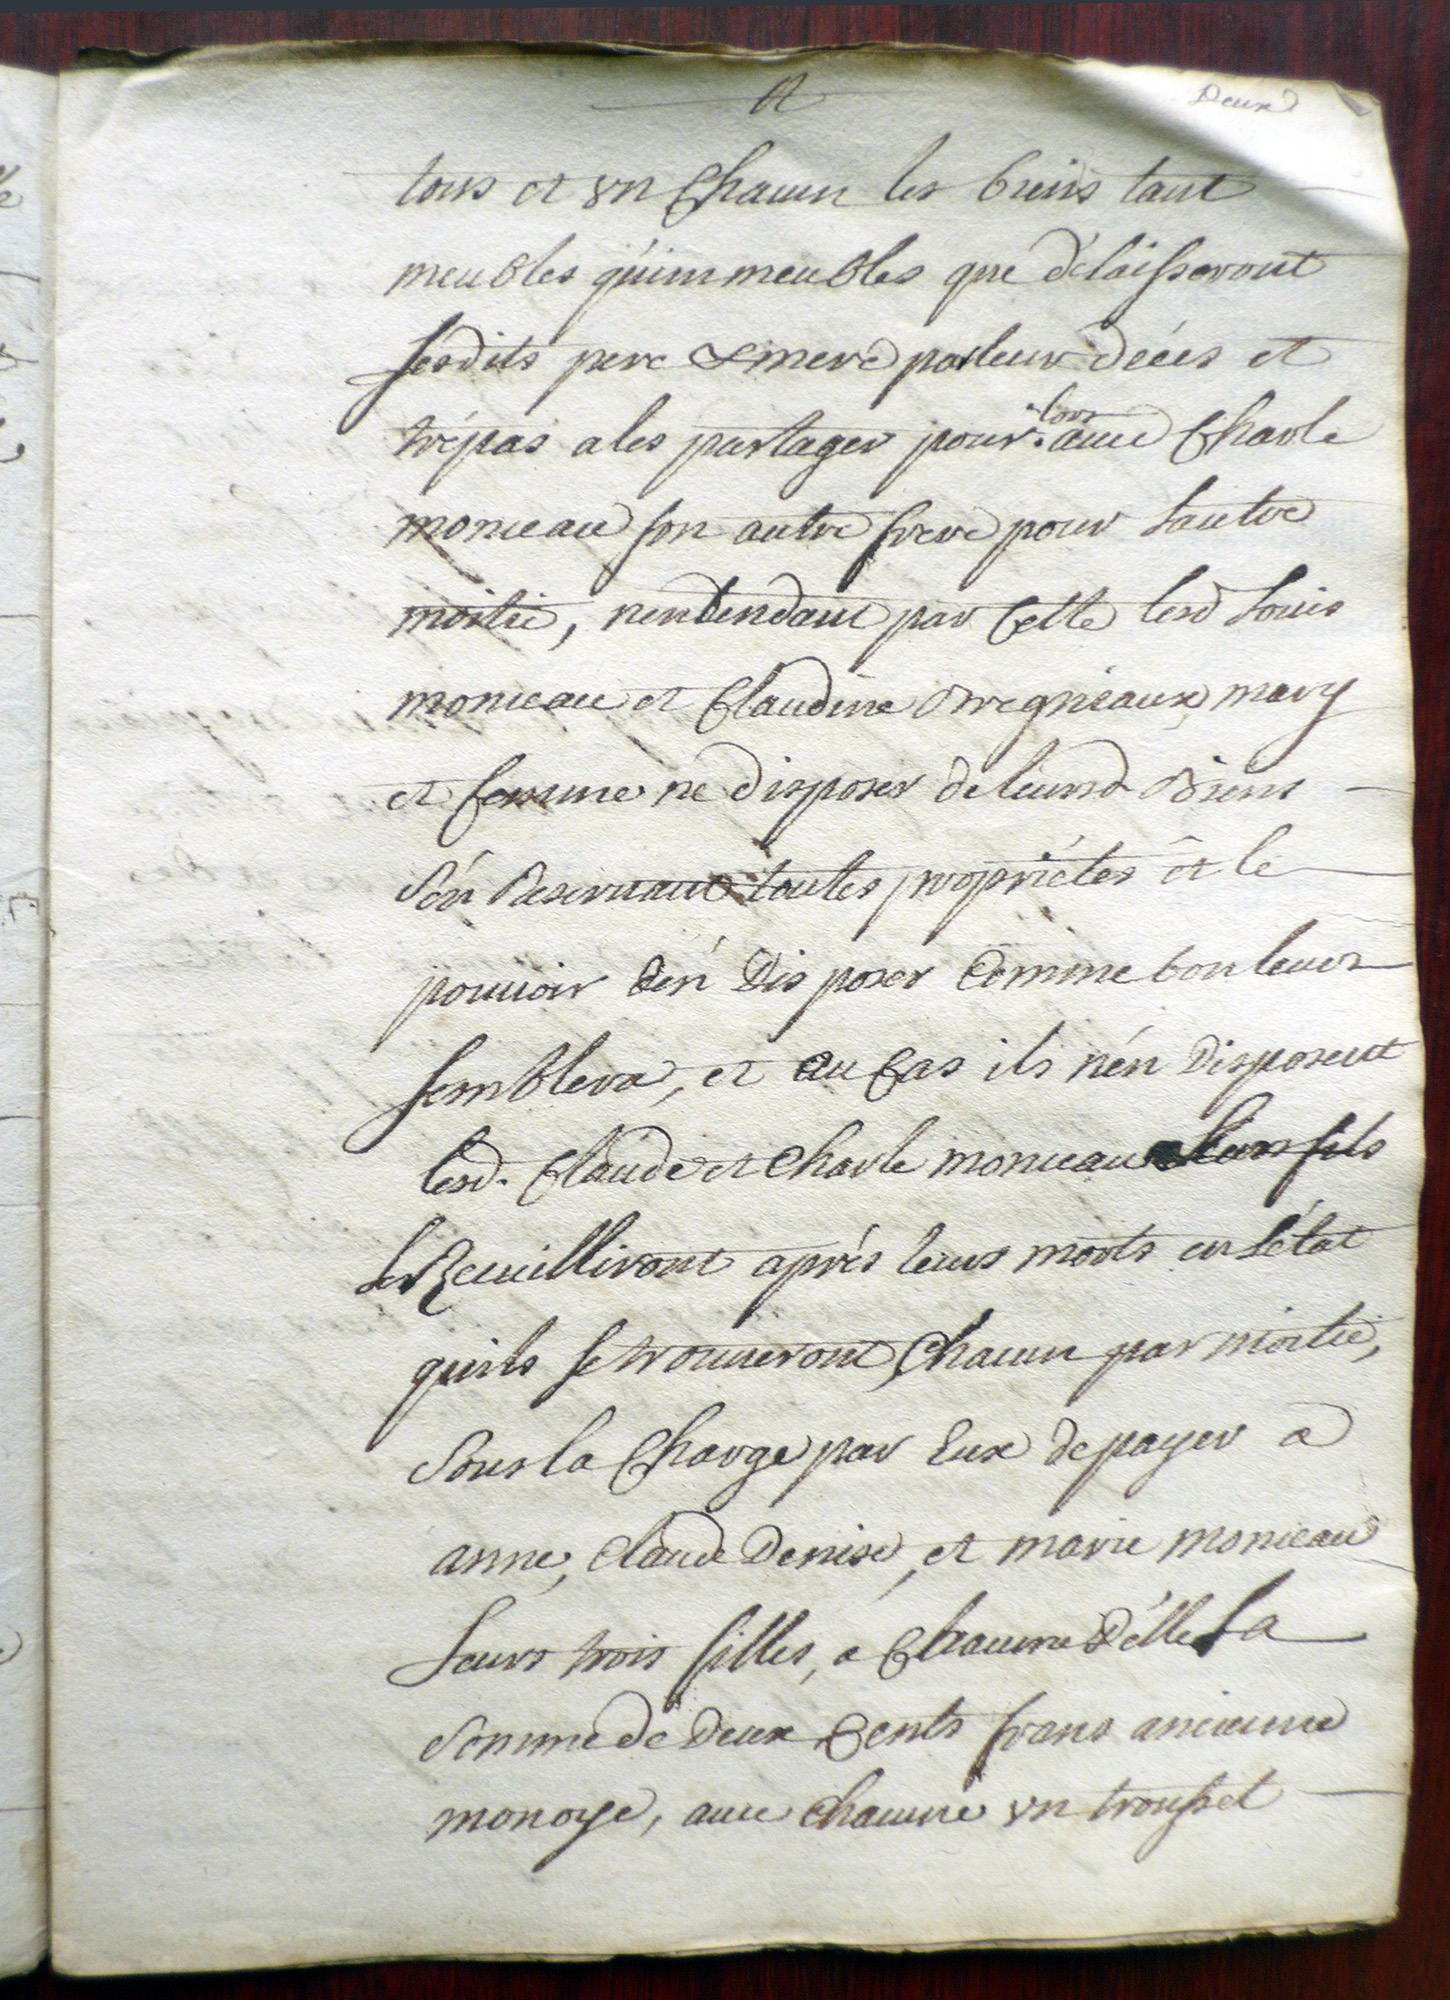 et
Deux
tous et un Chacun les biens tant
meubles qu'immeubles que délaisseront
Sesdits pere & mere par leur décés et
trépas a les partager pour lors avec Charle
monieau son autre frere pour Lautre
moitié, n'entendant par Cette lesd Louis
monieau et Claudine mary
et femme ne disposer de leursd Biens
S'én Reservant toutes propriétés ét le
pouvoir dén Disposer Comme bon leur
Semblera, et au Cas ils nén Disposent
lesd. Claude et Charle monieau leurs fils
Les Recuilliront aprés leurs morts en L'état
quils se trouveront Chacun par moitié,
Sous la Charge par Eux de payer a
anne, Claude Denise, et marie monieau
Leurs trois filles, a Chacune D'élle La
Somme de Deux Cents frans ancienne
monoye, avec Chacune un trousset